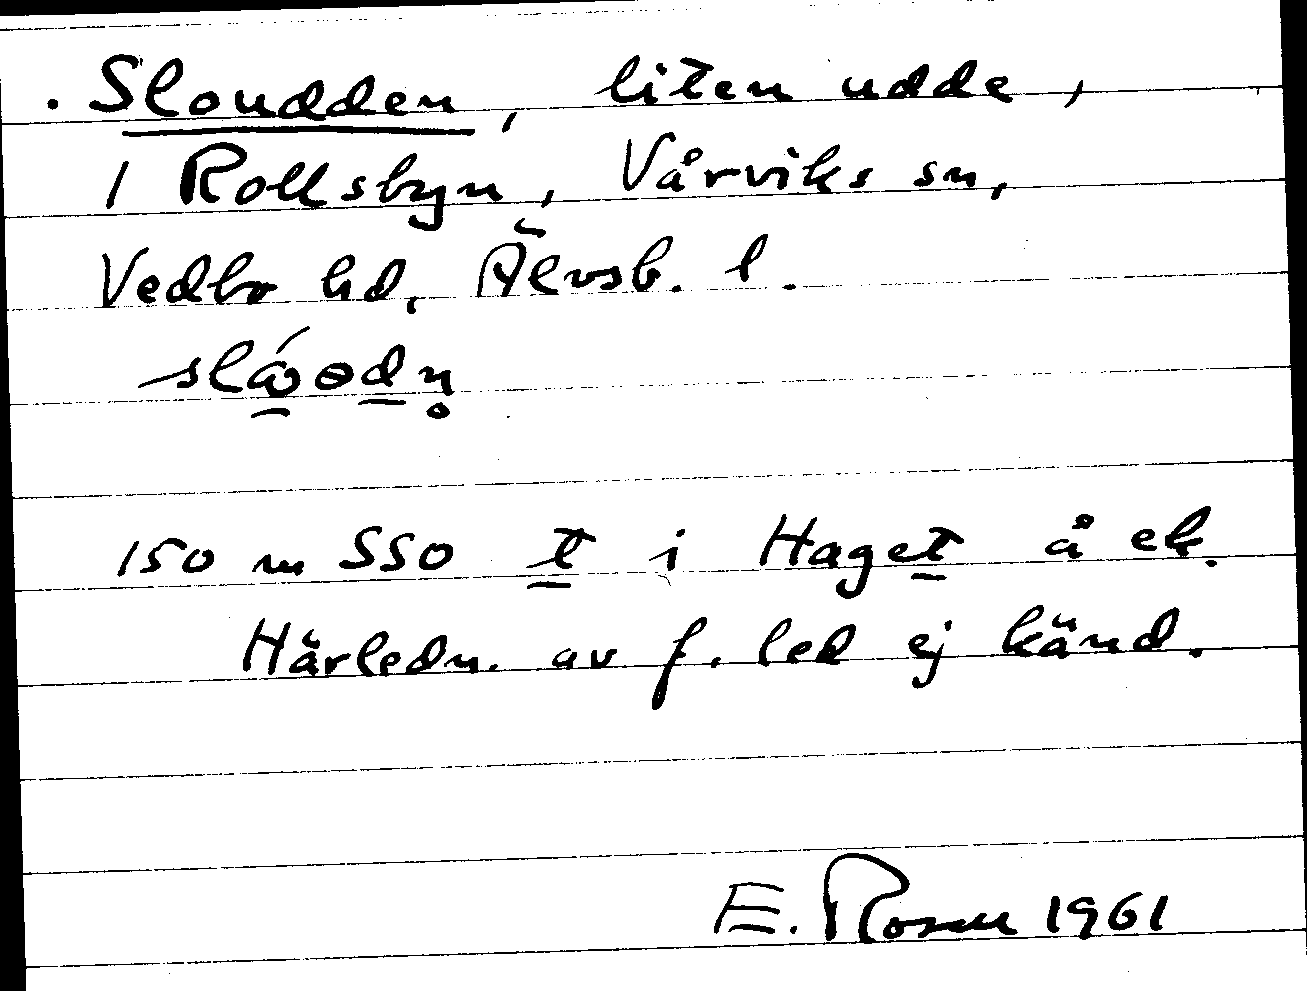 . Sloudden, liten udde,
i Rollsbyn, Vårviks sn,
Vedbo hd, Älvsb. l.
150 m SSO t i Haget å ek.
Härledn. av f. led ej känd.
E. Rosen 1961